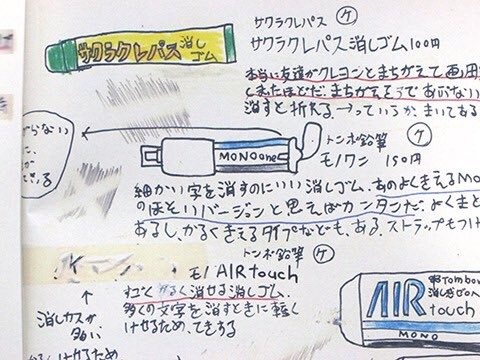 サクラクレパス ケ
サクラクレパス 消しゴム
サクラクレパス消しゴム 100円
本当に友達がクレヨンとまちがえて画用
しまたほどだ。まちがえそうであぶない
消すと折れる→っているか、まいてある
らない
た、
が
いる
MONO one
トンボ鉛筆 ケ
モノワン 150円
細かい字を消すのにいい消しゴム。あのよくきえるMO
のほそいバージョンと思えばカンタンだ。よくまと
あるし、かるくきえるタイプなども、ある、ストラップもつけ
トンボ鉛筆 ケ
モノAIR touch
すごくかるく消せる消しゴム、
多くの文字を消すときに軽く
けせるため、
できる
↑
消しカスが
多い
けせるため
AIR
Tombow
touch
MONO